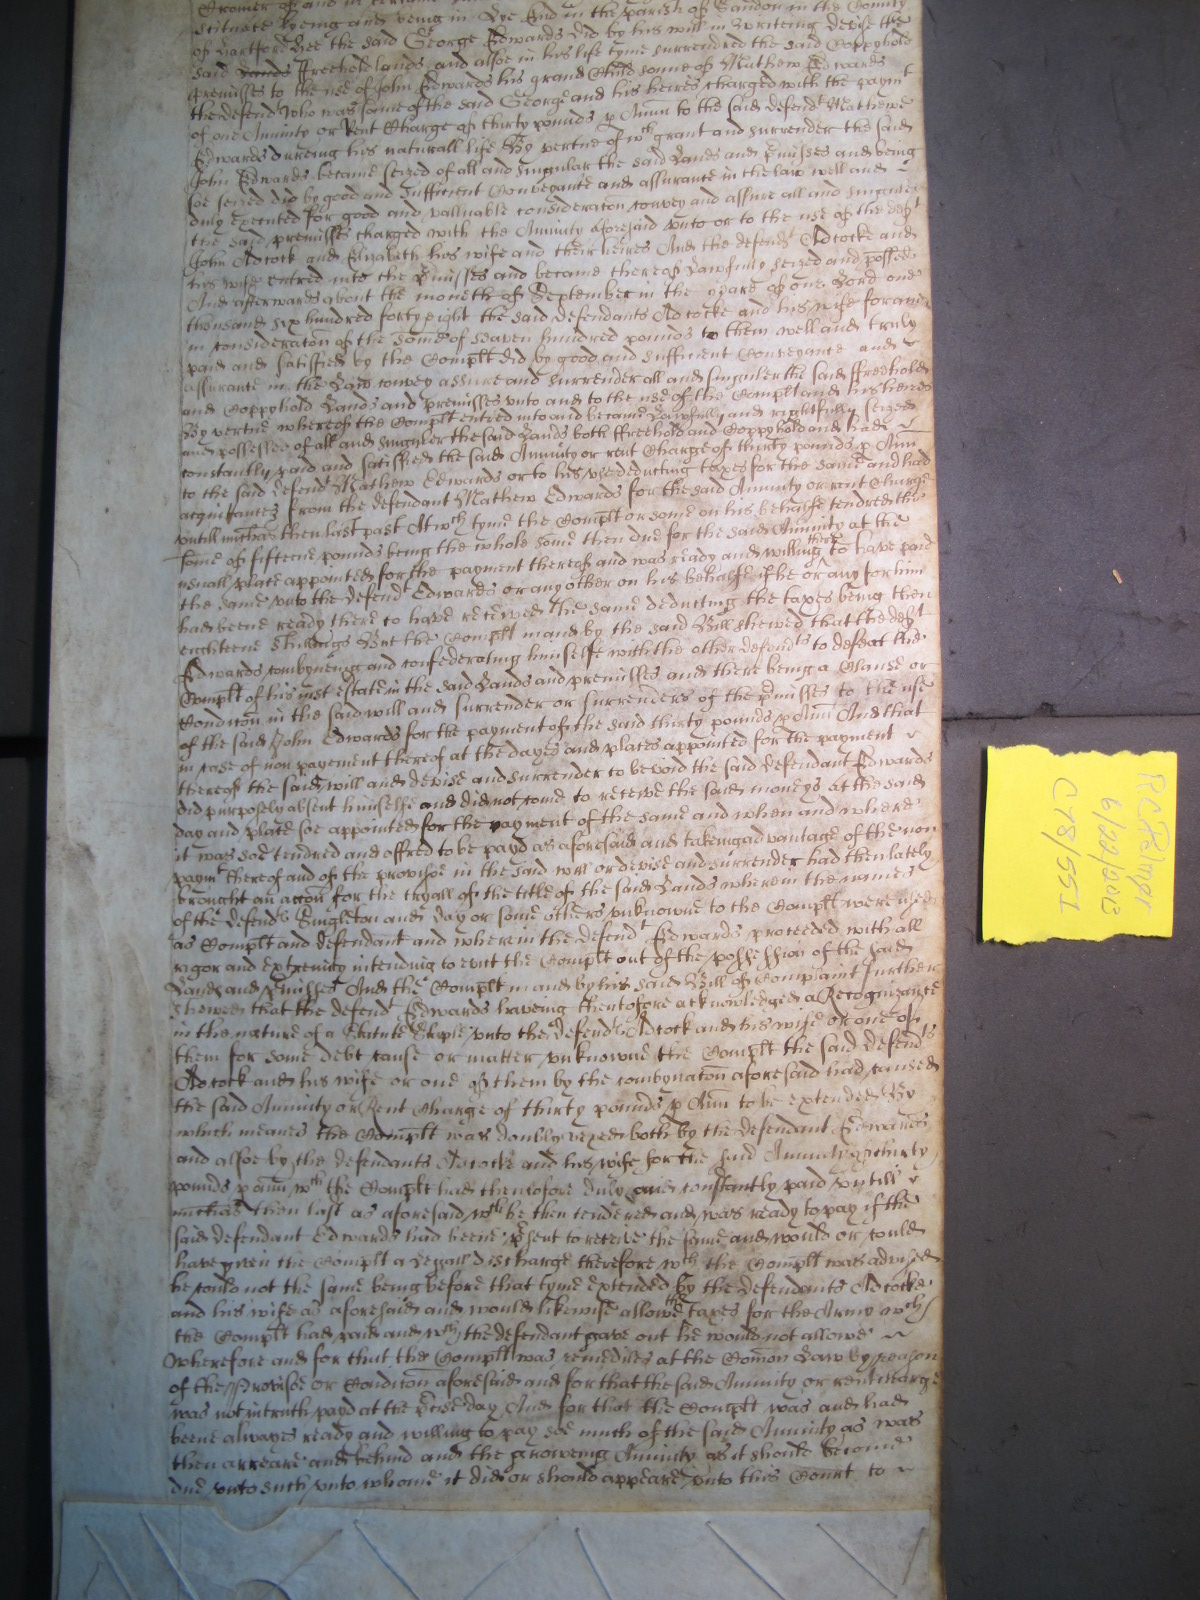 scituate lyeing and being in Rye End in the parish of Sandon in the County
of Hartford Hee the said George Edwards did by his will in writeing devise the
said Lands ffreehold lands and alsoe in his life tyme surrendred the said Coppyhold
premisses to the use of John Edwards his grand Child sonne of Mathew Edwards
the defend<sup>t</sup> who was sonne of the said George and his heires charged with the paym<sup>t</sup>
of one Annuity or Rent Charge of thirty pounds p Annū to the said defend<sup>t</sup> Mathewe
Edwards dureing his naturall life By vertue of w<sup>ch</sup> grant and surrender the said
John Edwards became seized of all and singular the said Lands and p̄misses and being
soe seized did by good and sufficient Conveyance and assurance in the law well and
duly executed for good and valluable consideracōn convey and assure all and singuler
the said premisses charged with the Annuity aforesaid vnto or to the use of the def<sup>t</sup>
John Adcock and Elizabeth his wife and their heires And the defend<sup>t</sup> Adcocke and
his wife entred into the p̄misses and became thereof Lawfully seized and possessed
And afterwards about the moneth of September in the yeare of our Lord one
thousand six hundred forty eight the said defendants Adcocke and his wife for and
in consideracōn of the some of seaven hundred pounds to them well and truly
paid and satisfied by the Complt did by good and sufficient Conveyance and
assurance in the Law convey assure and surrender all and singuler the said ffreehold
and Coppyhold Lands and premisses vnto and to the use of the Complt and his heires
By vertue whereof the Complt entred into and became Lawfully and rightfully seized
and possessed of all and singuler the said Lands both ffreehold and Coppyhold and hath
constantly paid and satisfied the said Annuity or rent Charge of thirty pounds p Annū
to the said defend<sup>t</sup> Mathew Edwards or to his use deducting taxes for the same and had
acquittances from the defendant Mathew Edwards for the said Annuity or rent Charge
vntill mich̄as then last past At w<sup>ch</sup> tyme the Complt or some on his behalfe tendred the
some of fifteene pounds being the whole some then due for the said Annuity at the
usuall place appointed for the payment thereof and was ready and willing there to have paid
the same vnto the defend<sup>t</sup> Edwards or any other on his behalfe if he or any for him
had beene ready there to have received the same deducting the taxes being then
eighteene shillings But the Complt in and by the said Bill shewed that the def<sup>t</sup>
Edwards combyneing and confederating himselfe with the other defend<sup>ts</sup> to defeat the
Complt of his just estate in the said Lands and premisses and there being a Clause or
Condicōn in the said will and surrender or surrenders of the p̄misses to the use
of the said John Edwards for the payment of the said thirty pounds p Annū And that
in case of non payement thereof at the dayes and places appointed for the payment
thereof the said will and devise and surrender to be void the said defendant Edwards
did purposely absent himselfe and did not come to receive the said moneys at the said
day and place soe appointed for the payment of the same and when and where
it was soe tendred and offred to be payd as aforesaid and takeing advantage of the non
paym<sup>t</sup> thereof and of the provisoe in the said will or devise and surrender had then lately
brought an accōn for the tryall of the title of the said Lands wherein the names
of the defend<sup>ts</sup> Singleton and Day or some others vnknowne to the Complt were used
as Complt and defendant and wherein the defend<sup>t</sup> Edwards proceeded with all
rigor and extremity intending to evict the Complt out of the possession of the said
Lands and p̄misses And the Complt in and by his said Bill of Complaint further
shewed that the defend<sup>t</sup> Edwards haveing thentofore acknowledged a Recognizance
in the nature of a Statute Staple vnto the defend<sup>ts</sup> Adcock and his wife or one of
them for some debt cause or matter vnknowne the Complt the said defend<sup>ts</sup>
Adcock and his wife or one of them by the combynacōn aforesaid had caused
the said Annuity or Rent Charge of thirty pounds p Annū to be extended By
which meanes the Complt was doubly vexed both by the defendant Edwards
and alsoe by the defendants Adcocke and his wife for the said Annuity of thirty
pounds p annū w<sup>ch</sup> the Complt had thentofore duly and constantly paid vntill
mich̄as then last as aforesaid w<sup>ch</sup> he then tendered and was ready to pay if the
said defendant Edwards had beene p̄sent to receive the same and would or could
have given the Complt a legall discharge therefore w<sup>ch</sup> the Complt was advised
he could not the same being before that tyme extended by the defendants Adcocke
and his wife as aforesaid and would likewise allowe the taxes for the Army w<sup>ch</sup>
the Complt had paid and w<sup>ch</sup> the defendant gave out he would not allowe
Wherefore and for that the Complt was remediles at the Comon Law by reason
of the Provisoe or Condicōn aforesaid and for that the said Annuity or rent charge
was not in truth payd at the p̄cise day And for that the Complt was and had
beene alwayes ready and willing to pay soe much of the said Annuity as was
then arreare and behind and the groweing Annuity as it should become
due vnto such vnto whome it did or should appeare vnto this Court to
RC Palmer
6/22/2013
C78/551